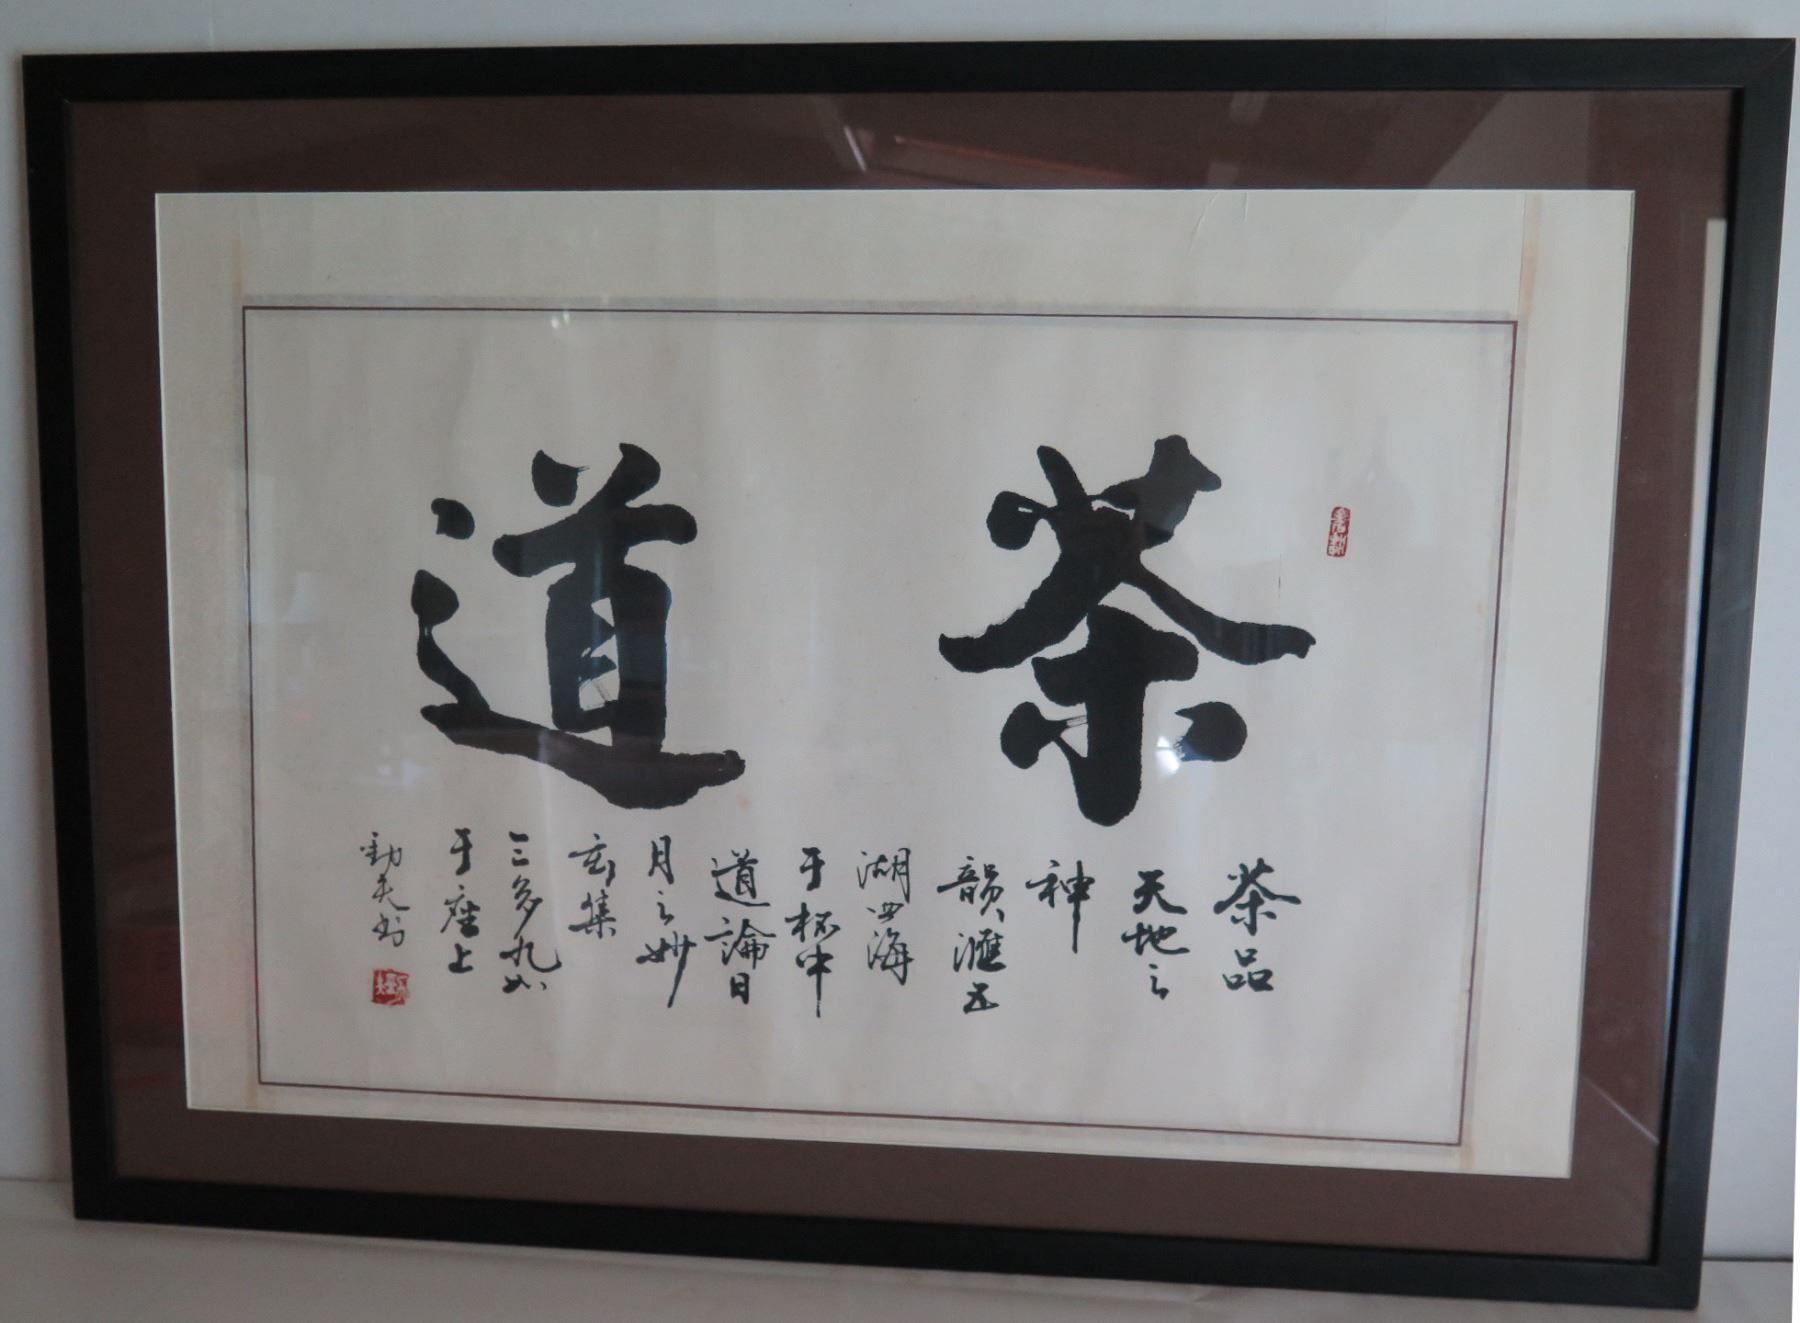 茶道
茶品
天地之
神
韻滙五
湖四海
于杯中
道論日
月之妙
玄集
三多九如
于座上
勁夫书